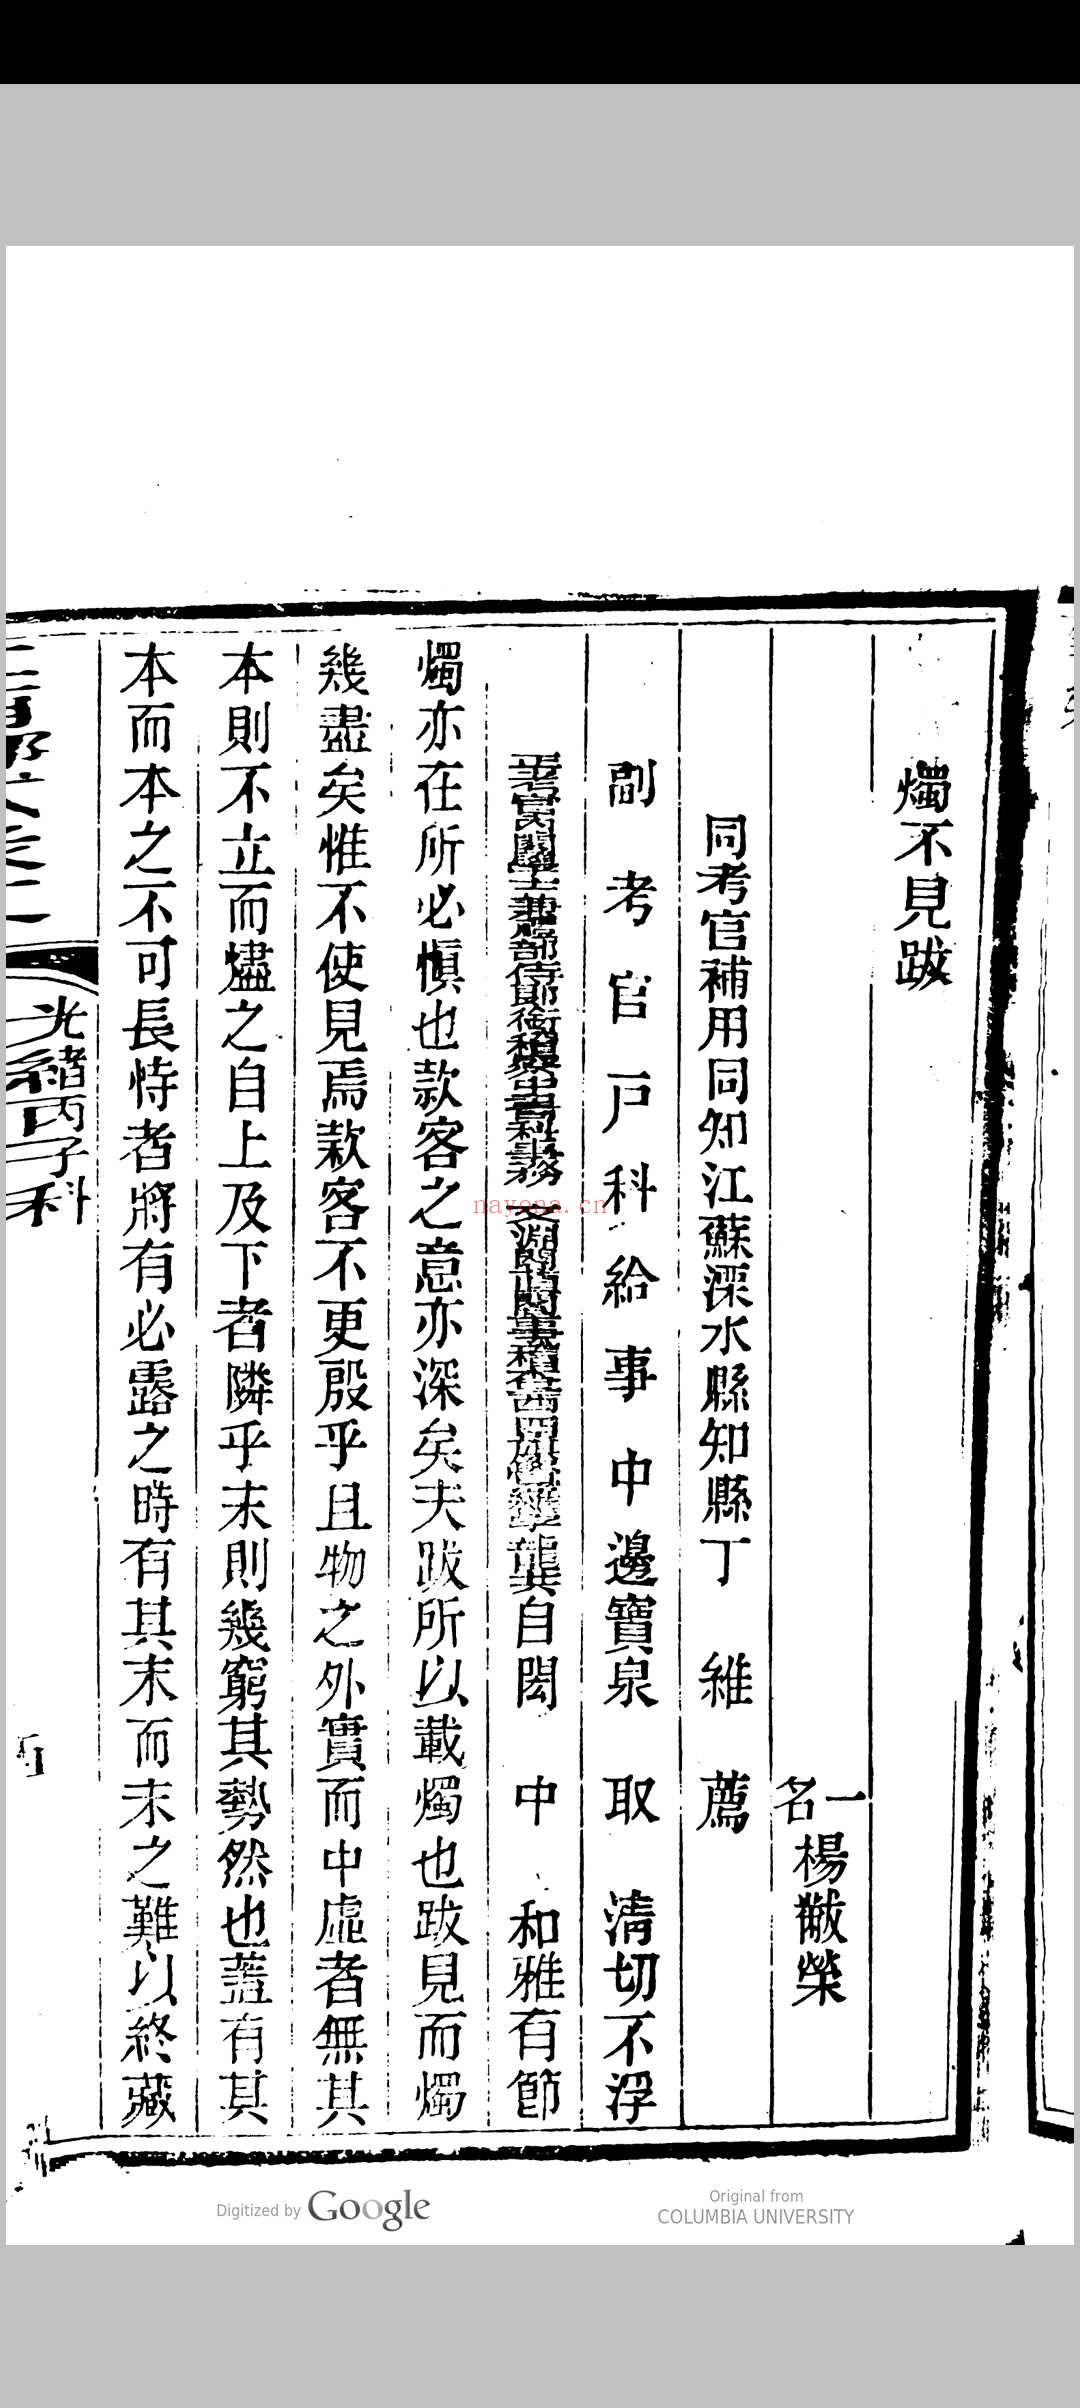 燭不見跋
一名 楊黻榮
同考官補用同知江蘇溧水縣知縣丁 維 薦
副考官戸科給事中邊寶泉 取 清切不浮
龔自閎 中 和雅有節
燭亦在所必慎也款客之意亦深矣夫跋所以載燭也跋見而燭
幾盡矣惟不使見焉款客不更殷乎且物之外實而中虛者無其
本則不立而燼之自上及下者隣乎末則幾窮其勢然也蓋有其
本而本之不可長恃者將有必露之時有其末而末之難以終藏
光緒丙子科
nayona.cn
Digitized by Google
Original from
COLUMBIA UNIVERSITY